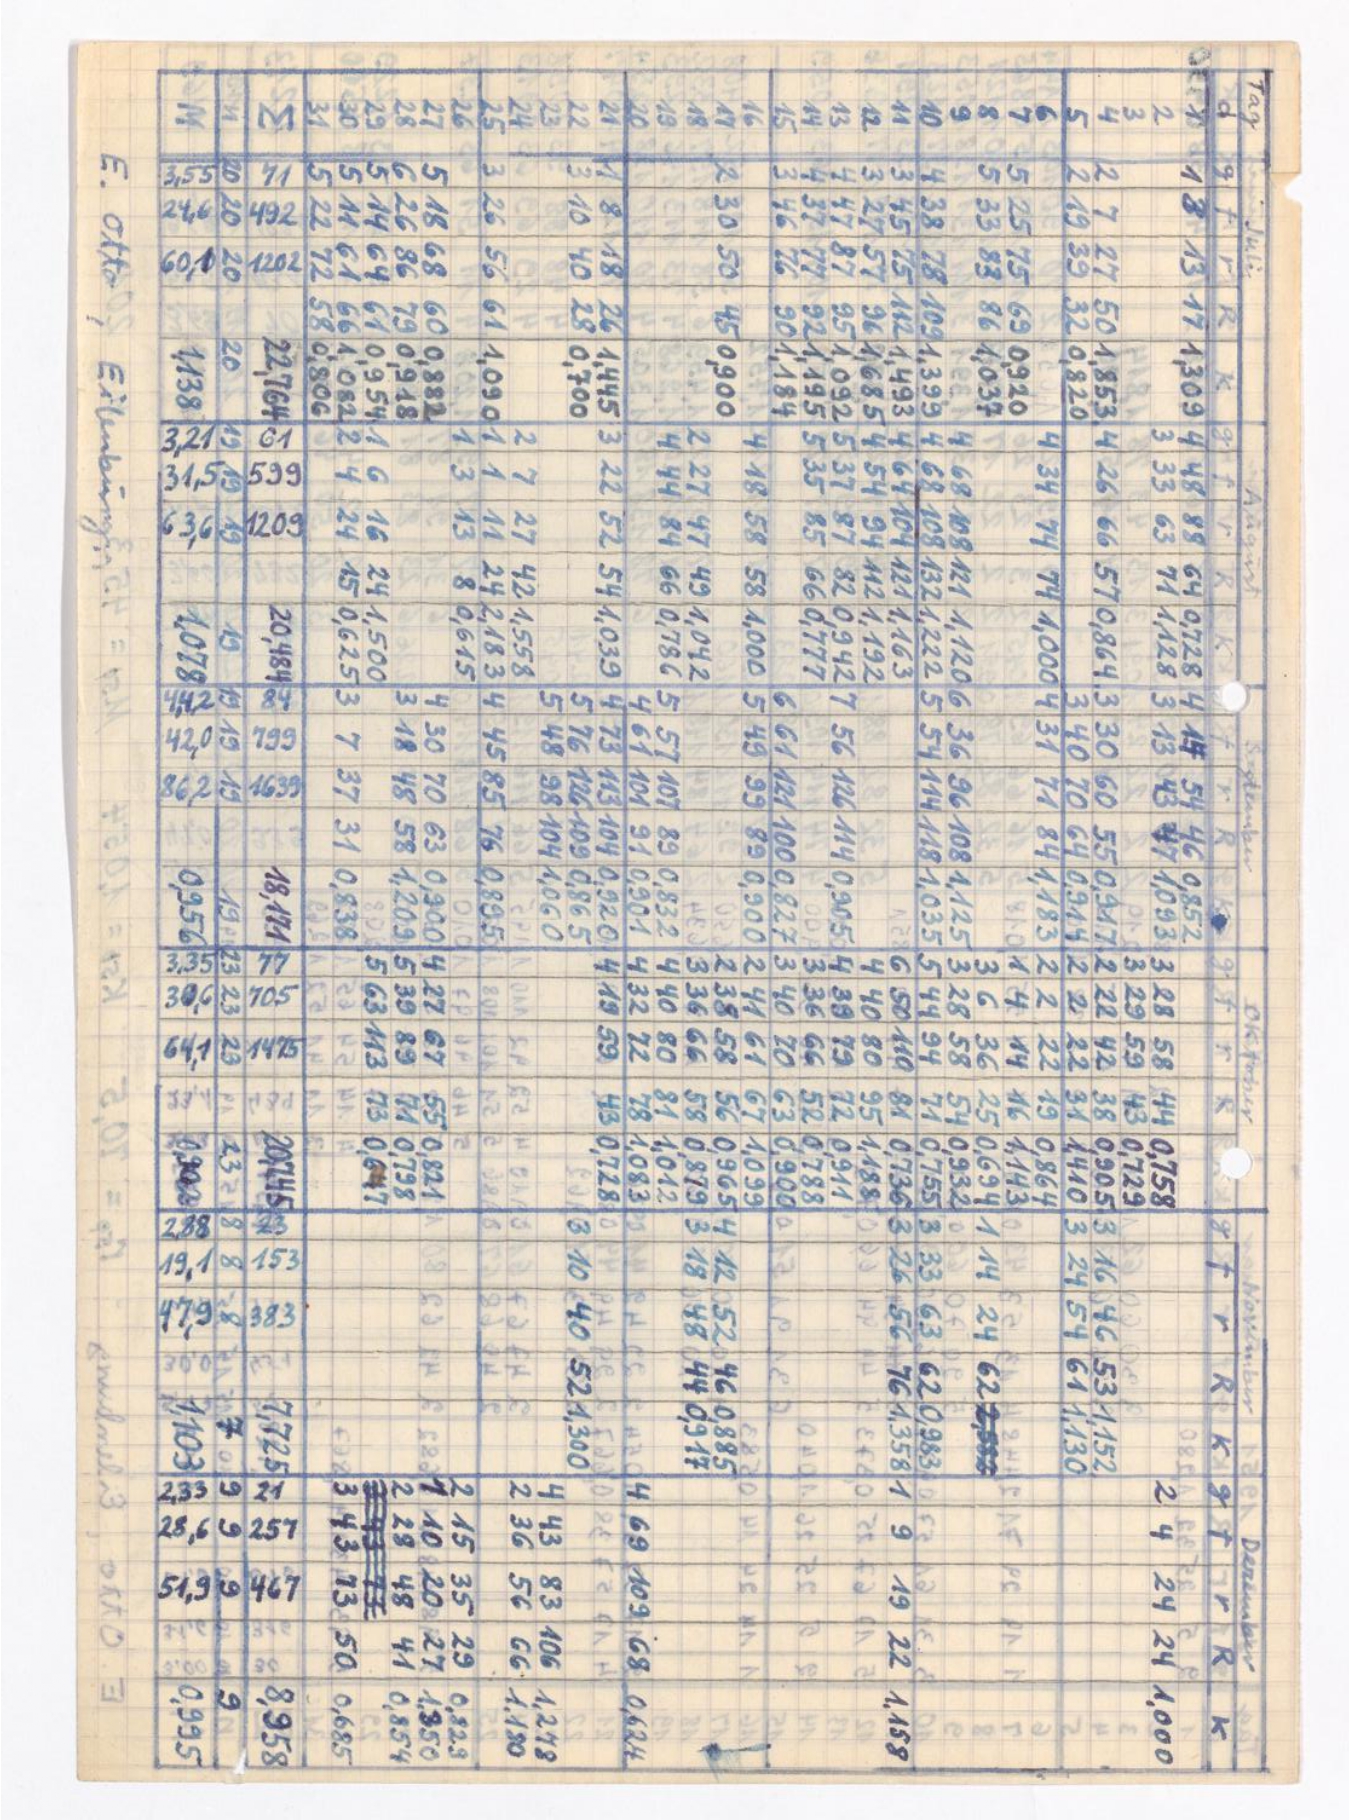 Tag Juli August September Oktober November 1951 Dezember
d g f r R K g f r R K g f r R K g f r R K g f r R K g f r R K
1 1 3 13 17 1,309 4 48 88 64 0,728 4 14 54 46 0,852
2 3 33 63 71 1,128 3 13 43 47 1,093 3 28 58 44 0,758 2 4 24 24 1,000
3 3 29 59 43 0,729
4 2 7 27 50 1,853 4 26 66 57 0,864 3 30 60 55 0,917 2 22 42 38 0,905 3 16 46 53 1,152
5 2 19 39 32 0,820 3 40 70 64 0,914 2 2 22 31 1,410 3 24 54 61 1,130
6 4 34 74 74 1,000 4 31 71 84 1,183 2 2 22 19 0,864
7 5 25 75 69 0,920 1 4 14 16 1,143
8 5 33 83 86 1,037 3 6 36 25 0,694 1 14 24 62
9 4 68 108 121 1,120 6 36 96 108 1,125 3 28 58 54 0,932
10 4 38 78 109 1,399 4 68 108 132 1,222 5 54 114 118 1,035 5 44 94 71 0,755 3 33 63 62 0,983
11 3 45 75 112 1,493 4 64 104 121 1,163 6 50 110 81 0,736 3 26 56 76 1,358 1 9 19 22 1,158
12 3 27 57 96 1,685 4 54 94 112 1,192 4 40 80 95 1,188
13 4 47 87 95 1,092 5 37 87 82 0,942 7 56 126 114 0,905 4 39 79 72 0,911
14 4 37 77 92 1,195 5 35 85 66 0,777 3 36 66 52 0,788
15 3 46 76 90 1,184 6 61 121 100 0,827 3 40 70 63 0,900
16 4 18 58 58 1,000 5 49 99 89 0,900 2 41 61 67 1,099
17 2 30 50 45 0,900 2 38 58 56 0,965 4 12 52 46 0,885
18 2 27 47 49 1,042 3 36 66 58 0,879 3 18 48 44 0,917
19 4 44 84 66 0,786 5 57 107 89 0,832 4 40 80 81 1,012
20 4 61 101 91 0,901 4 32 72 78 1,083 4 69 109 68 0,624
21 1 8 18 26 1,445 3 22 52 54 1,039 4 73 113 104 0,920 4 19 59 43 0,728
22 3 10 40 28 0,700 5 76 126 109 0,865 3 10 40 52 1,300
23 5 48 98 104 1,060 4 43 83 106 1,278
24 2 7 27 42 1,558 2 36 56 66 1,180
25 3 26 56 61 1,090 1 1 11 24 2,183 4 45 85 76 0,895
26 1 3 13 8 0,615 2 15 35 29 0,829
27 5 18 68 60 0,882 4 30 70 63 0,900 4 27 67 55 0,821 1 10 20 27 1,350
28 6 26 86 79 0,918 3 18 48 58 1,209 5 39 89 71 0,798 2 28 48 41 0,854
29 5 14 64 61 0,954 1 6 16 24 1,500 5 63 113 73 0,647
30 5 11 61 66 1,082 2 4 24 15 0,625 3 7 37 31 0,838
31 5 22 72 58 0,806 3 43 73 50 0,685
Σ 71 492 1202 22,764 61 599 1209 20,484 84 799 1639 18,171 77 705 1475 20,745 23 153 383 7,725 21 257 467 8,958
n 20 20 20 20 19 19 19 19 19 19 19 19 23 23 23 23 8 8 8 7 9 9 9 9
M 3,55 24,6 60,1 1,138 3,21 31,5 63,6 1,078 4,42 42,0 86,2 0,956 3,35 30,6 64,1 2,88 19,1 47,9 1,103 2,33 28,6 51,9 0,995
E. Otto, Eilenburg